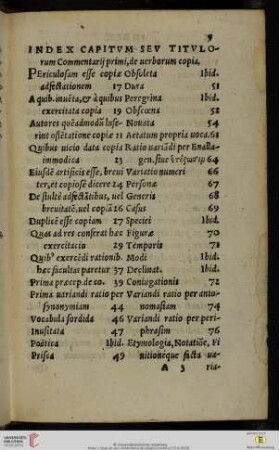 9
INDEX CAPITVM SEV TITVLO-
rum Commentarij primi, de uerborum copia.
PEriculosam esse copiæ Obsoleta Ibid.
adfectationem 17 Dura 51
A quib. inuēta, et à quibus Peregrina Ibid.
exercitata copia 19 Obscœna 52
Autores quēadmodū luse- Nouata 54
rint ostētatione copiæ 21 Aetatum propria uoca. 61
Quibus uicio data copia Ratio uariādi per Enalla-
immodica 23 gen, siue 64
Eiusdē artificis esse, breui Variatio numeri 66
ter, et copiose dicere 24 Personæ 67
De stultè adfectātib. uel Generis 68
breuitatē, uel copiā 26 Casus 69
Duplicē esse copiam 27 Speciei Ibid.
Quas ad res conferat hæc Figuræ 70
exercitacio 29 Temporis 71
Quibꝰ exercēdi rationib. Modi Ibid.
hæc facultas paretur 37 Declinat. Ibid.
Prima præcep. de co. 39 Coniugationis 72
Prima uariandi ratio per Variandi ratio per anto-
synonymiam 44 nomasiam 74
Vocabula sordida 46 Variandi ratio per peri-
Inusitata 47 phrasim 76
Poëtica Ibid. Etymologia, Notatiōe, Fi
Prisca 49 nitionéque ficta ua-
A 3 ria-